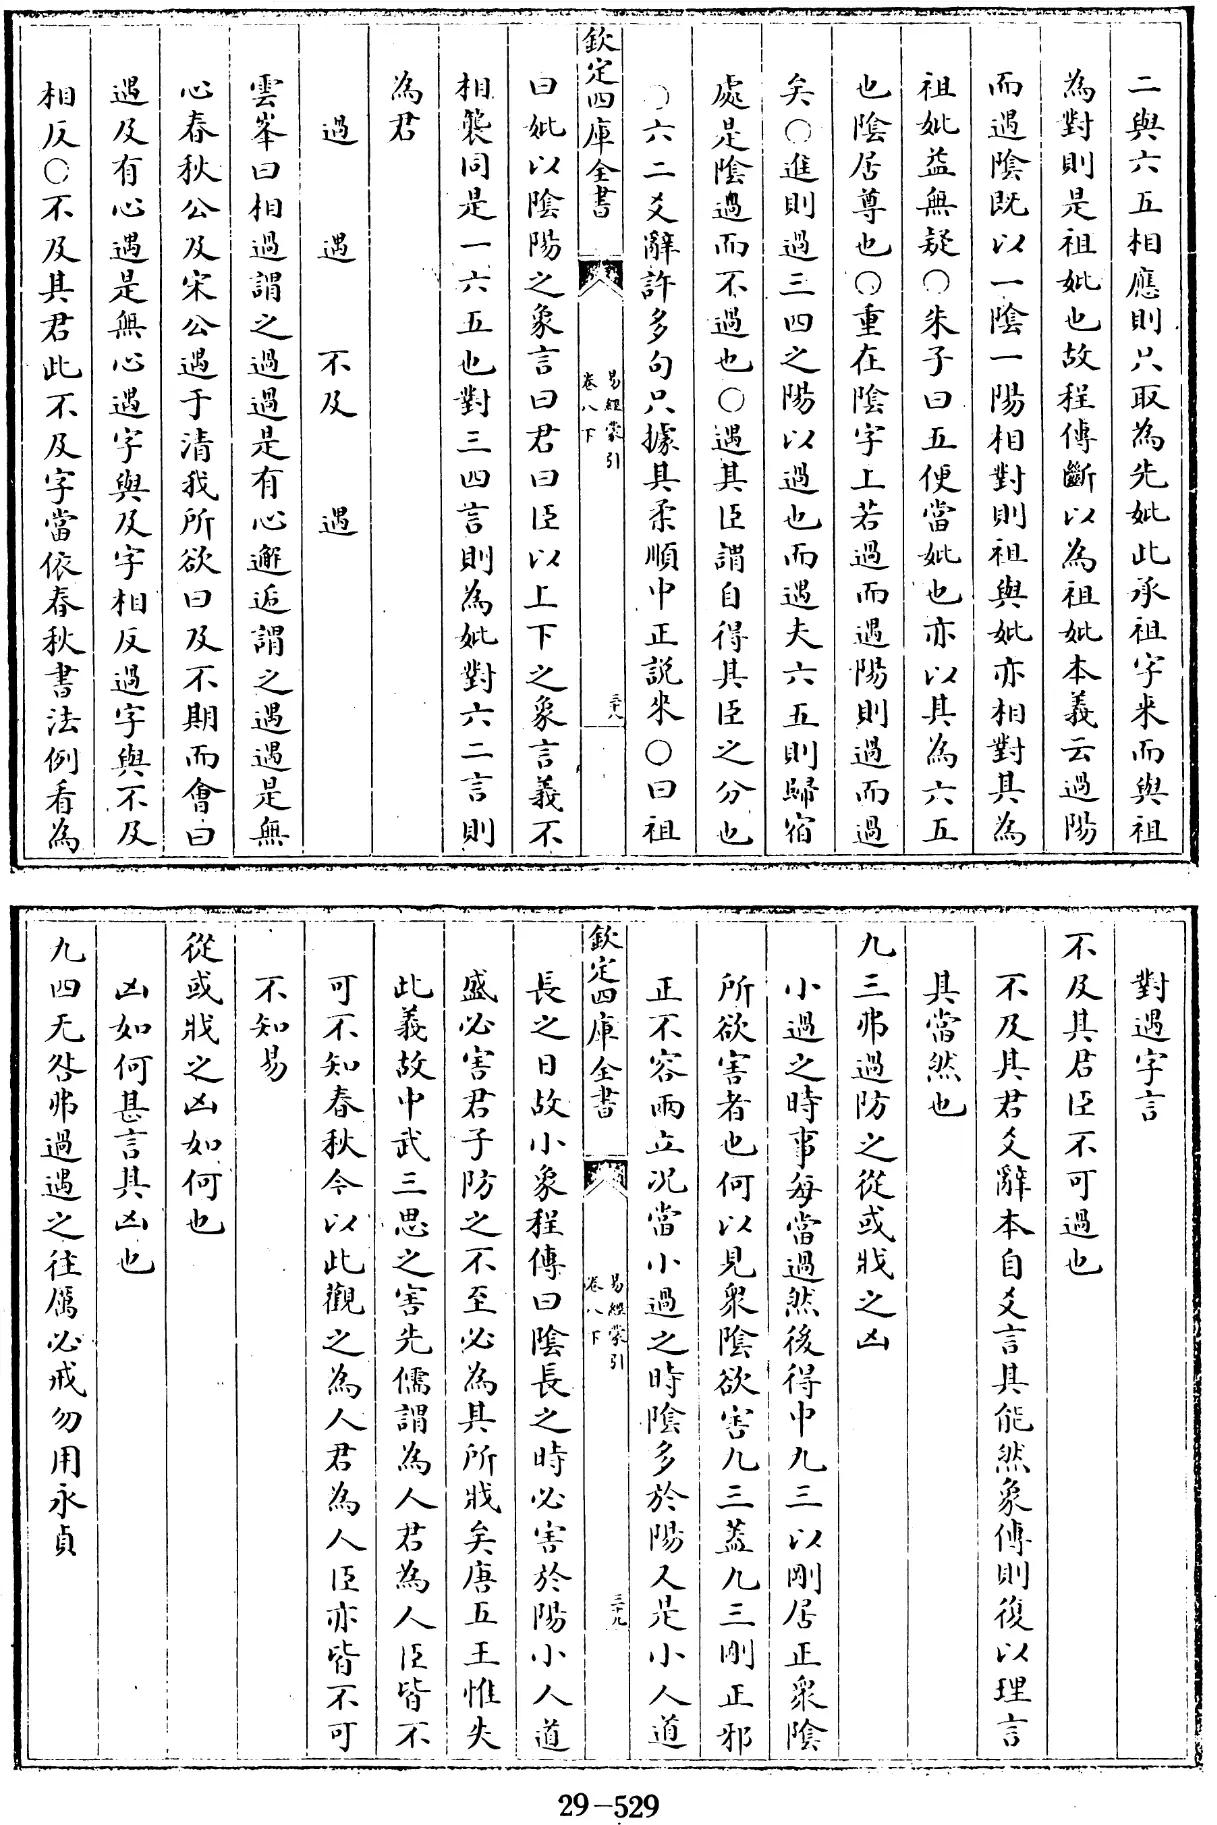 二與六五相應則只取為先妣此承祖字來而與祖
為對則是祖妣也故程傳斷以為祖妣本義云過陽
而遇陰既以一陰一陽相對則祖與妣亦相對其為
祖妣益無疑○朱子曰五便當妣也亦以其為六五
也陰居尊也○重在陰字上若過而遇陽則過而過
矣○進則過三四之陽以過也而遇夫六五則歸宿
處是陰遇而不過也○遇其臣謂自得其臣之分也
○六二爻辭許多句只據其柔順中正説來○曰祖
欽定四庫全書
易經蒙引
卷八下
三十八
曰妣以陰陽之象言曰君曰臣以上下之象言義不
相襲同是一六五也對三四言則為妣對六二言則
為君
過 遇 不及 遇
雲峯曰相過謂之過過是有心邂逅謂之遇遇是無
心春秋公及宋公遇于清我所欲曰及不期而會曰
遇及有心遇是無心遇字與及字相反過字與不及
相反○不及其君此不及字當依春秋書法例看為
對遇字言
不及其君臣不可過也
不及其君爻辭本自爻言其能然象傳則復以理言
其當然也
九三弗過防之從或戕之凶
小過之時事每當過然後得中九三以剛居正衆陰
所欲害者也何以見衆陰欲害九三蓋九三剛正邪
正不容兩立况當小過之時陰多於陽又是小人道
欽定四庫全書
易經蒙引
卷八下
三十九
長之日故小象程傳曰陰長之時必害於陽小人道
盛必害君子防之不至必為其所戕矣唐五王惟失
此義故中武三思之害先儒謂為人君為人臣皆不
可不知春秋今以此觀之為人君為人臣亦皆不可
不知易
從或戕之凶如何也
凶如何甚言其凶也
九四无咎弗過遇之往厲必戒勿用永貞
29-529